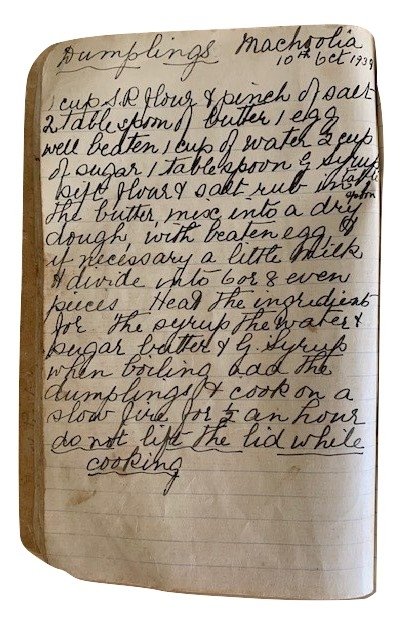 Dumplings Machoolia
10th Oct 1939
1 cup S.R flour & pinch of salt
2 tablespoon of butter 1 egg
well beaten 1 cup of water ½ cup
of sugar 1 tablespoon G syrup
sift flour & salt rub in
the butter, mix into a dry
dough, with beaten egg &
if necessary a little milk
& divide into 6 or 8 even
pieces Heat the ingredient
for the syrup the water &
sugar butter & G syrup
when boiling add the
dumplings & cook on a
slow fire for ½ an hour
do not lift the lid while
cooking